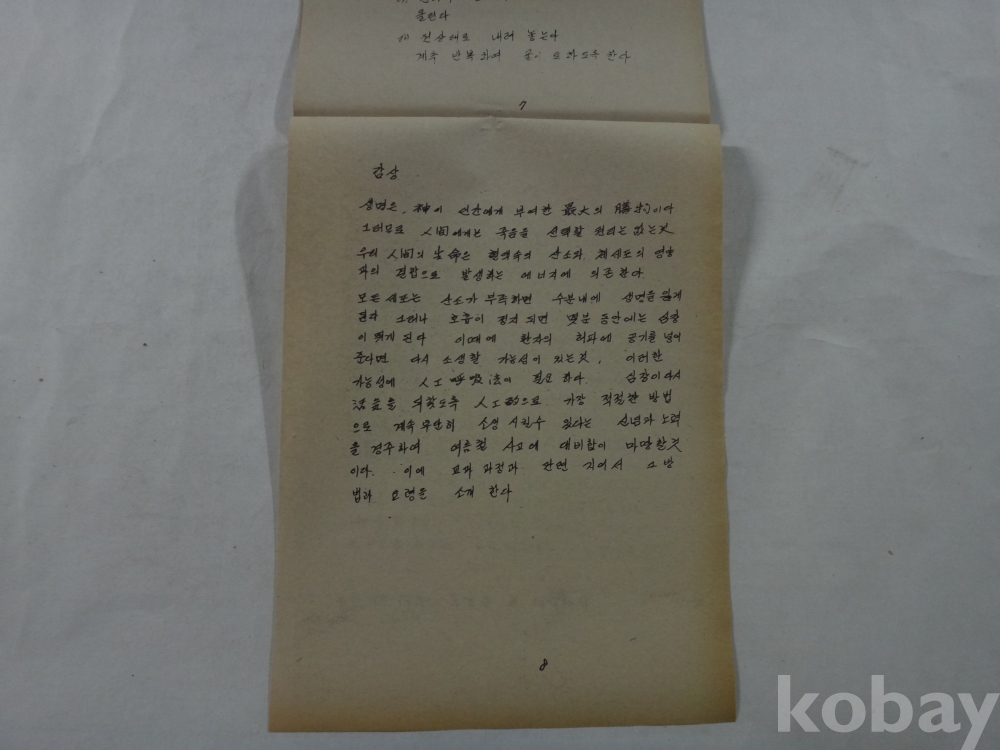 올린다
전상태로 내려 놓는다
계속 반복하여 물이 토하도록 한다
7
감상
생명은, 神이 인간에게 부여한 最大의 膳物이다
그러므로 人間에게는 죽음을 선택할 권리는 없는것
우리 人間의 生命은 혈액속의 산소와 체세포의 영양
과의 결합으로 발생하는 에너지에 의존한다.
모든 세포는 산소가 부족하면 수분내에 생명을 잃게
된다 그러나 호흡이 정지 되면 몇분 동안에는 심장
이 멎게 된다 이때에 환자의 허파에 공기를 넣어
준다면 다시 소생할 가능성이 있는것, 이러한
가능성에 人工呼吸法이 필요하다. 심장이 다시
活動을 되찾도록 人工的으로 가장 적절한 방법
으로 계속 무단히 소생 시킬수 있다는 신념과 노력
을 경주하여 여름철 사고에 대비함이 마땅할것
이다. 이에 교과 과정과 관련 지어서 그 방
법과 요령을 소개 한다
8
kobay